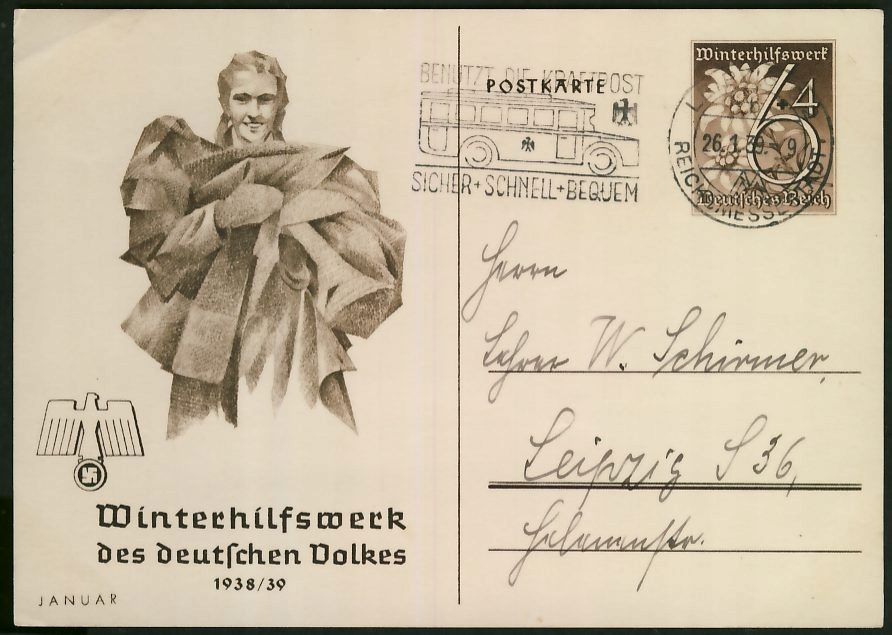 Winterhilfswerk
des deutschen Volkes
1938/39
JANUAR
BENUTZT DIE KRAFTPOST
POSTKARTE
SICHER+SCHNELL+BEQUEM
Winterhilfswerk
6+4
Deutsches Reich
26.1.39. 9
REICHSMESSESTADT
Herrn
Lehrer W. Schirmer,
Leipzig S 36,